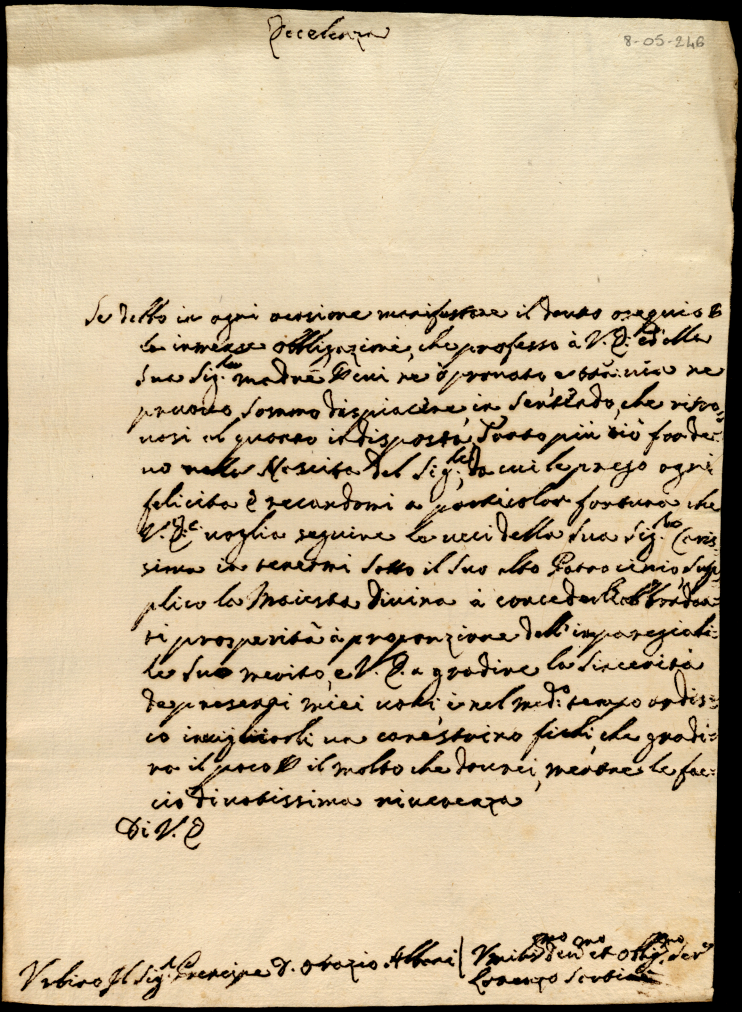 Eccelenza
8-05-246
Se debbo in ogni occasione manifestare il douto ossequio e
le immense obbligazioni, che professo à V. E. ed alla
sua Sig.ra madre cui ne ò prouato e ne
prouo sommo dispiacere in sentendo, che ritro
uasi al quanto indisposta, Tanto più ciò far de:
uo nella Nascita del Sig. da cui le prego ogni
felicita e recandomi a particolar fortuna che
V. E. uoglia seguire le ueci della sua Sig.
sima in tenermi sotto il suo alto Patrocinio, sup
plico la Maiesta Diuina à concederli abbondan
ti prosperità à proporzione dell' imparegiabi:
le suo merito, e V. E. a gradire la sincerità
de presenti miei uoti e nel med.o tempo ardis:
co inuigliarli un canestrino fichi che gradi:
ra il poco il molto che dourei, mentre le fac:
cio diuotissima riuerenza
Di V. E
Vrbino Il Sig. Prencipe D. Orazio Albani
Vmilis.mo deu.mo et obbg.mo Ser.
Lorenzo